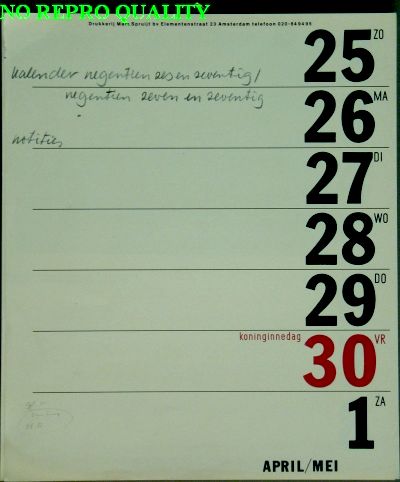 NO REPRO QUALITY
Drukkerij Mart.Spruijt bv Elementenstraat 23 Amsterdam telefoon 020-849495
25 ZO
kalender negentien zes en zeventig/
26 MA
negentien zeven en zeventig
notities
27 DI
28 WO
29 DO
koninginnedag
30 VR
1 ZA
APRIL/MEI